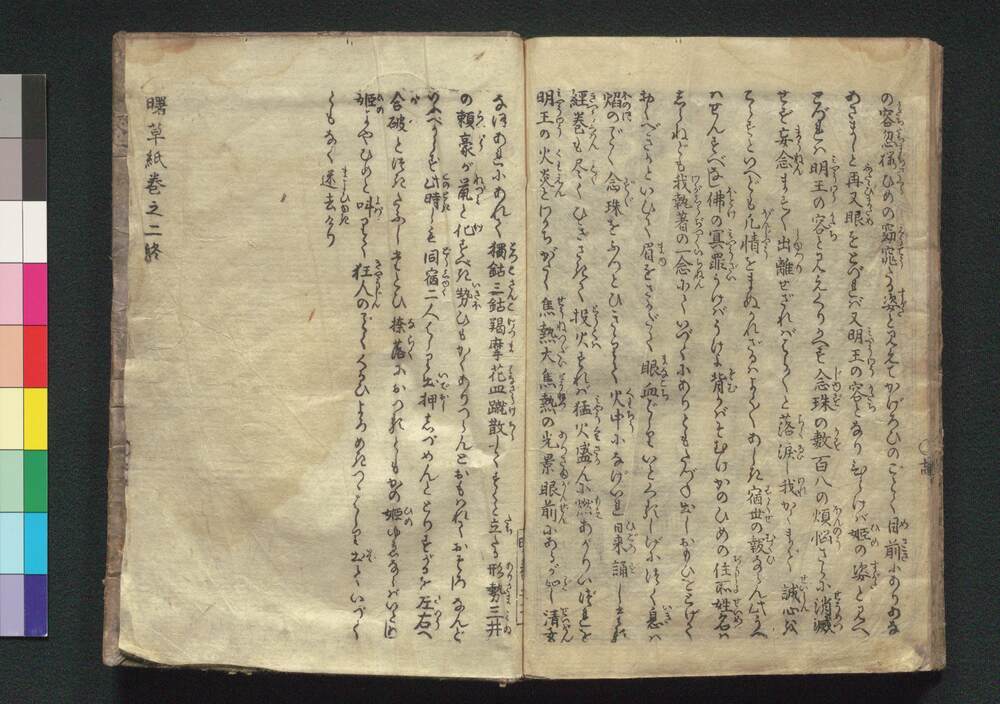 の容忽様ひめの窈窕る姿と見えてかげろひのごとく目前にありあな
あさましと再又眼をとぢれバ又明王の容となりひらけバ姫の姿と見え
とづれハ明王の容と見えくりかへす念珠の数百八の煩悩さらに消滅
せず妄念ますます出離せざれバはらはらと落涙し我かくまで誠心を
こらすといへども凡情をまぬかれざるハよくよくあしき宿世の報ならん此うへ
ハせんすべなし佛の冥罰うけバうけよ背かバそむけかのひめの住所姓名ハ
しらねども我執着の一念にていづくにありともたづね出しおもひとげで
おくべきかといひつつ眉をさかだて眼血ばしりいとおそろしげにつく息ハ
焔のごとく念珠をふつとひききり火中になげいれ日来誦しける
経巻も尽くひきさきて投火すれバ猛火盛んに燃あがりいぶせき
明王の火炎とわかちがたく焦熱大焦熱の光景眼前にあらはし清玄
なほあれにあれて獨鈷三鈷羯摩花皿蹴散してすつと立たる形勢三井
の頼豪が鼠と化すべき勢ひもかくありつらんとおもはれておそろしなんど
いふべからず此時しも同宿二人はしり出押しづめんととりすがるを左右へ
合破とけたふしまとひ捺落におつるともかの姫ゆゑならバいとはじ
姫よやひめと呼つつ狂人のごとくくるひよろめきつつはしり出ていづく
ともなく迷去けり
曙草紙巻之二終